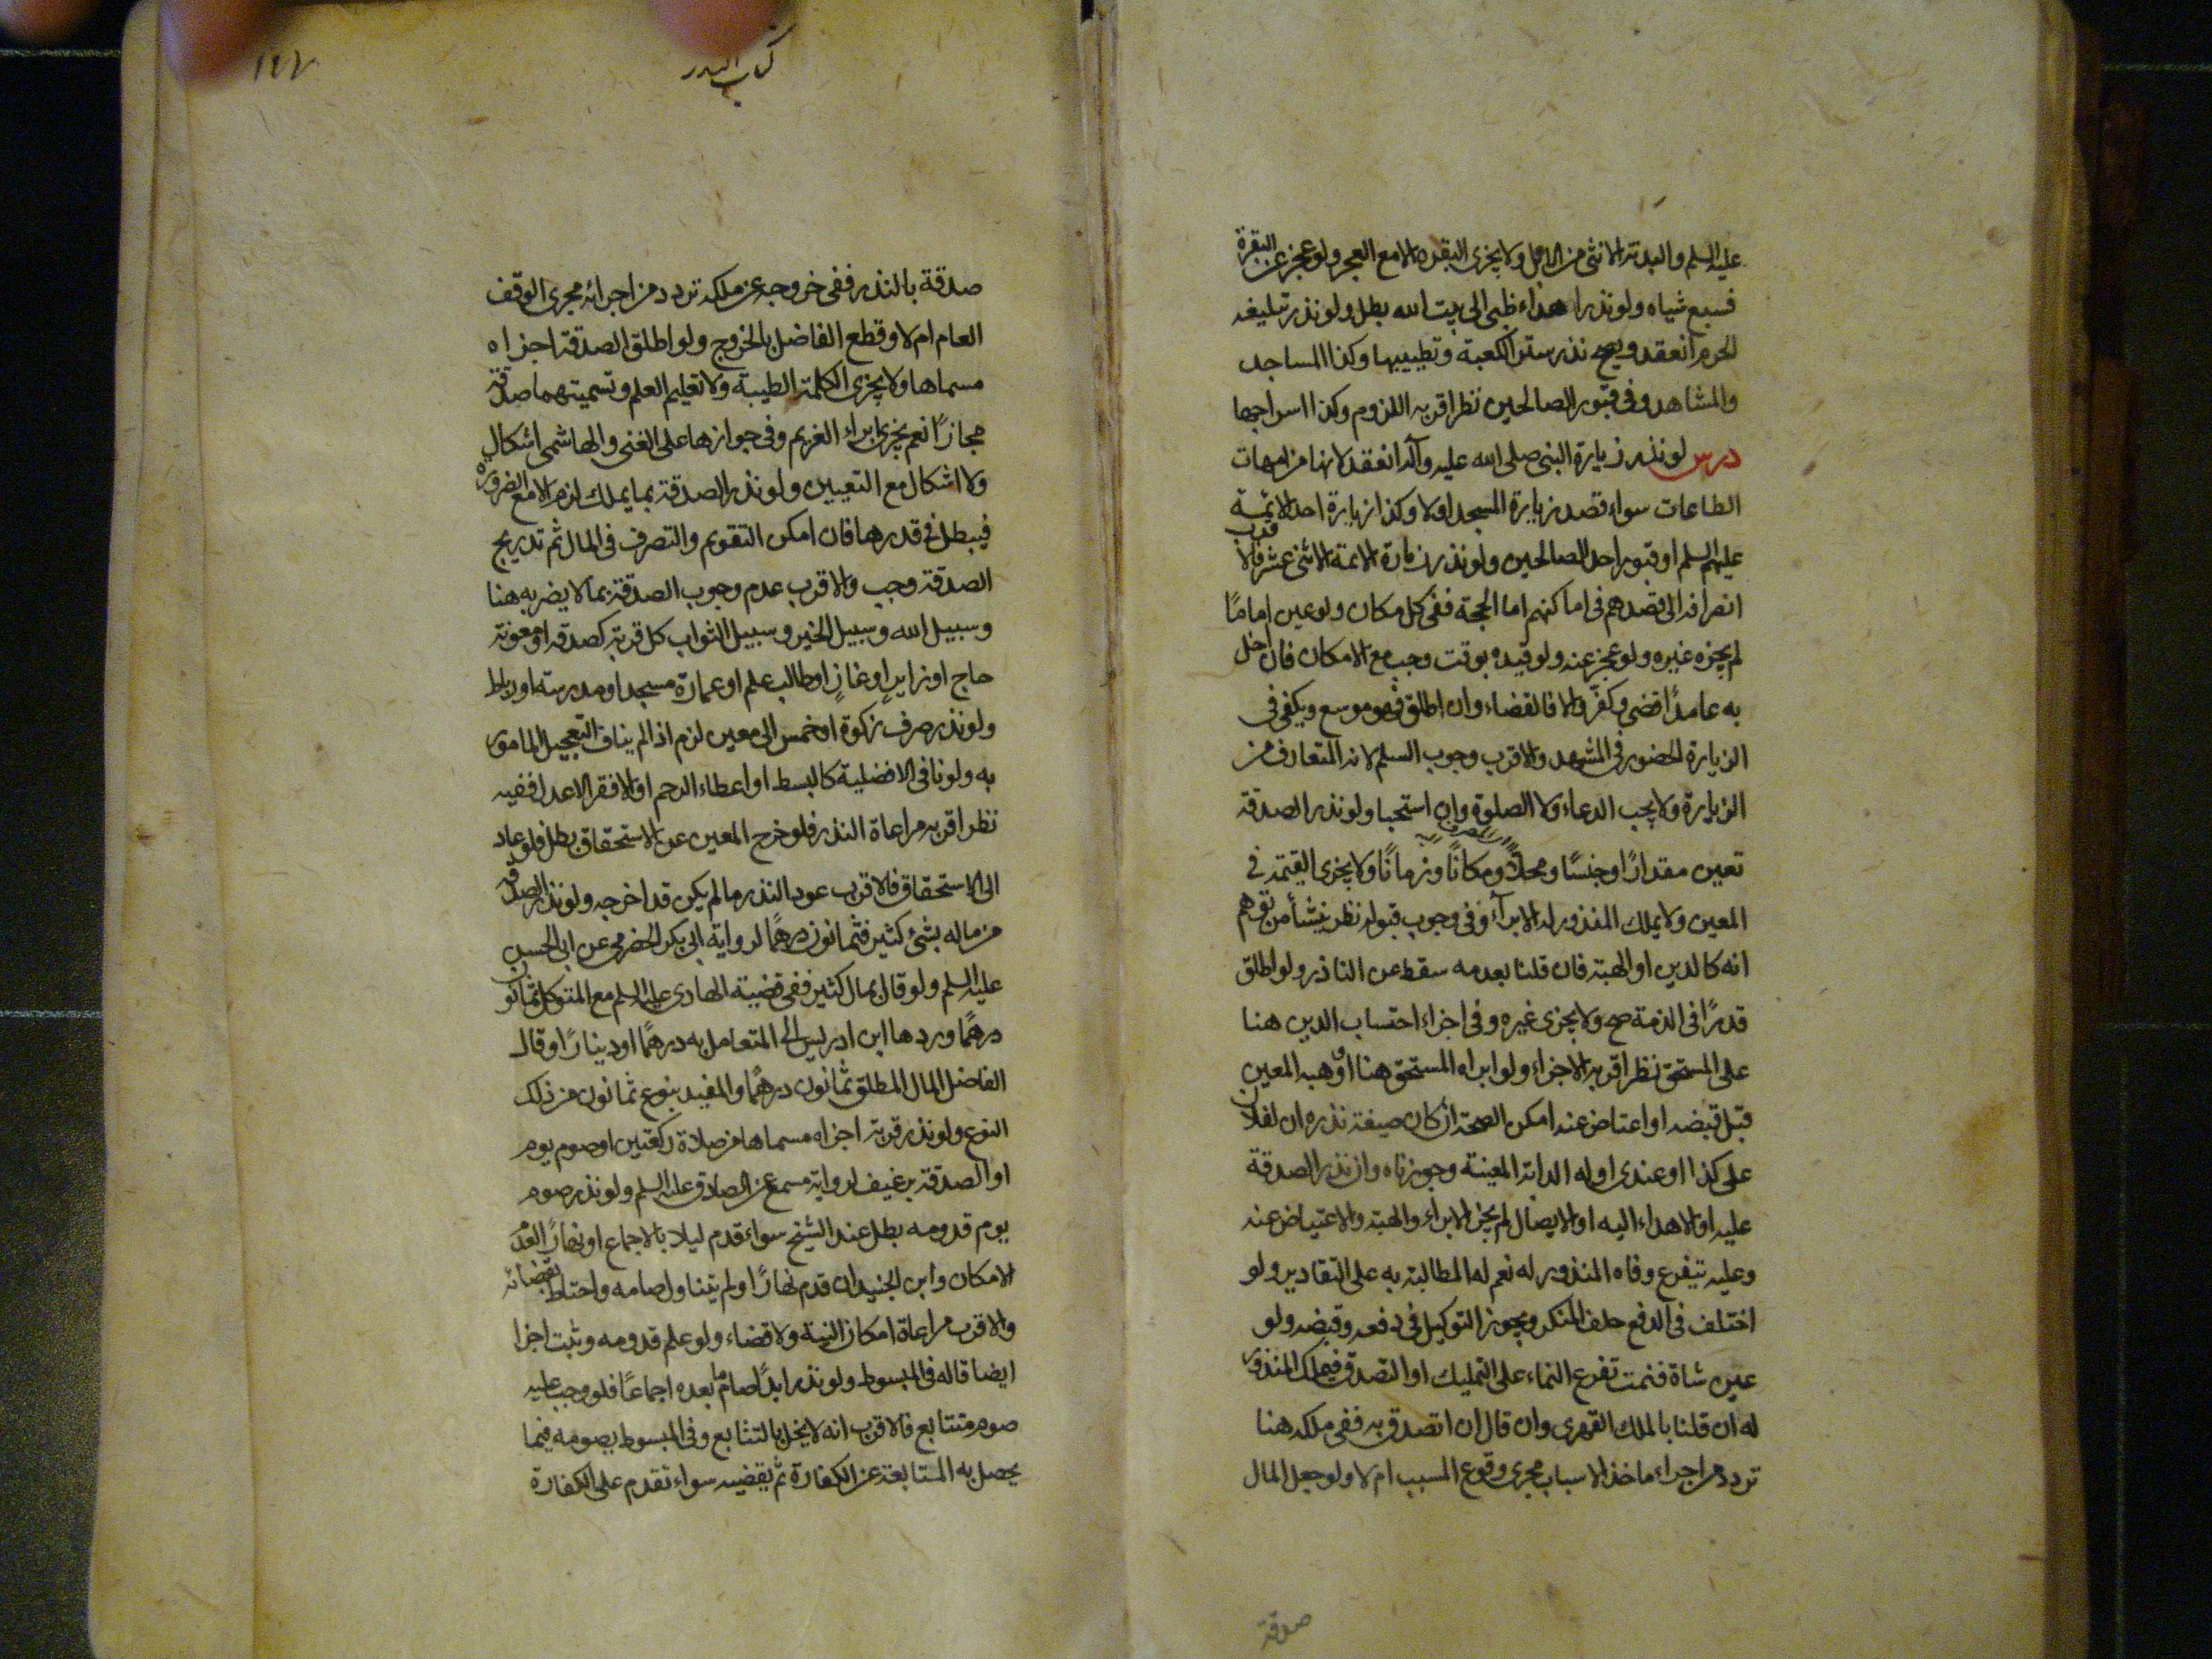 عليه السلم والبدنة الانثى من الابل ولا يجزى البقرة الا مع العجز ولو عجز عن البقرة
فسبع شياه ولو نذر اهداء ظبى الى بيت الله بطل ولو نذر تبليغه
الحرم انعقد ويصح نذر ستر الكعبة وتطييبها وكذا المساجد
والمشاهد وفى قبور الصالحين نظر اقربه اللزوم وكذا اسراجها
درس لو نذر زيارة النبى صلى الله عليه وآله انعقد لانها من امهات
الطاعات سواء قصد زيارة المسجد اولا وكذا زيارة احد الائمة
عليهم السلم او قبور احد الصالحين ولو نذر زيارة الائمة الاثنى عشر فالاقرب
انصرافه الى قصدهم فى اماكنهم اما الحجة ففى كل مكان ولو عين اماما
لم يجزه غيره ولو عجز عنه ولو قيده بوقت وجب مع الامكان فان اخل
به عامدًا قضى وكفّر والا فالقضاء وان اطلق فهو موسع ويكفى فى
الزيارة الحضور فى المشهد والاقرب وجوب السلم لانه المتعارف من
الزيارة ولا يجب الدعاء ولا الصلوة وان استحبا ولو نذر الصدقة
تعين مقدارًا وجنسًا ومحلًّا ومكانًا وزمانًا ولا يجزى القيمة فى
المعين ولا يملك المنذور له الابرآء وفى وجوب قبوله نظر ينشأ من توهم
انه كالدين او الهبة فان قلنا بعدمه سقط عن الناذر ولو اطلق
قدرًا فى الذمة صح ولا يجزى غيره وفى اجزاء احتساب الدين هنا
على المستحق نظر اقربه الاجزاء ولو ابراه المستحق هنا او وهبه المعين
قبل قبضه او اعتاض عنه امكن الصحة ان كان صيغة نذره ان لفلان
على كذا او عندى او له الدابة المعينة وجوزناه وان نذر الصدقة
عليه او الاهداء اليه او الايصال لم يجز الابراء والهبة والاعتياض عنه
وعليه يتفرع وفاه المنذور له نعم له المطالبة به على التقادير ولو
اختلف فى الدفع حلف المنكر ويجوز التوكيل فى دفعه وقبضه ولو
عين شاة فنمت تفرع النماء على التمليك او التصدق فيملك المنذور
له ان قلنا بالملك القهرى وان قال ان اتصدق به ففى ملكه هنا
تردد من اجراء ماخذ الاسباب مجرى وقوع المسبب ام لا ولو جعل المال
صدقة
كتاب النذر
١٤٧
صدقة بالنذر ففى خروجه عن ملكه تردد من اجرائه مجرى الوقف
العام ام لا وقطع الفاضل بالخروج ولو اطلق الصدقة اجزاه
مسماها ولا يجزى الكلمة الطيبة ولا تعليم العلم وتسميتهما صدقة
مجازًا نعم يجزى ابراء الغريم وفى جوازها على الغنى والهاشمى اشكال
ولا اشكال مع التعيين ولو نذر الصدقة بما يملك لزم الا مع الضرورة
فيبطل فى قدرها فان امكن التقويم والتصرف فى المال ثم تدريج
الصدقة وجب والاقرب عدم وجوب الصدقة بما لا يضر به هنا
وسبيل الله وسبيل الخير وسبيل الثواب كل قربة كصدقة او معونة
حاج او زاير او غازٍ او طالب علم او عمارة مسجد او مدرسة او رباط
ولو نذر صرف زكوة او خمس الى معين لزم اذا لم يناف التعجيل المامور
به ولو نافى الافضلية كالبسط او اعطاء الرحم او الافقر الاعدل ففيه
نظر اقربه مراعاة النذر فلو خرج المعين عن الاستحقاق بطل فلو عاد
الى الاستحقاق فالاقرب عود النذر ما لم يكن قد اخرجه ولو نذر الصدقة
من ماله بشئ كثير فثمانون درهمًا لرواية ابى بكر الحضرمى عن ابى الحسن
عليه السلم ولو قال بمال كثير ففى قضية الهادى عليه السلم مع المتوكل ثمانون
درهمًا وردها ابن ادريس الى المتعامل به درهمًا او دينارًا وقال
الفاضل المال المطلق ثمانون درهمًا والمقيد بنوع ثمانون من ذلك
النوع ولو نذر قربة اجزاه مسماها من صلاة ركعتين او صوم يوم
او الصدقة برغيف لرواية مسمع عن الصادق عليه السلم ولو نذر صوم
يوم قدومه بطل عند الشيخ سواء قدم ليلا بالاجماع او نهارًا لعدم
الامكان وابن الجنيد ان قدم نهارًا ولم يتناول صامه واحتاط بقضائه
والاقرب مراعاة امكان النية ولا قضاء ولو علم قدومه وثبت اجزا
ايضا قاله فى المبسوط ولو نذر ابدًا صام ما بعده اجماعًا فلو وجب عليه
صوم متتابع فالاقرب انه لا يخل بالتتابع وفى المبسوط يصومه فيما
يحصل به المتابعة عن الكفارة ثم يقضيه سواء تقدم على الكفارة